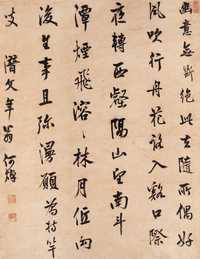 幽意无斷絕此去隨所偶好
風吹行舟花路入谿口際
夜轉西壑隔山望南斗
潭煙飛溶〻林月低向
後生事且弥漫願為持竿
叟 年翁 何焯